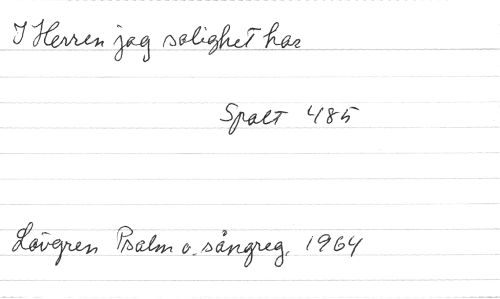 I Herren jag salighet har
Spalt 485
Lövgren Psalm o. sångreg. 1964